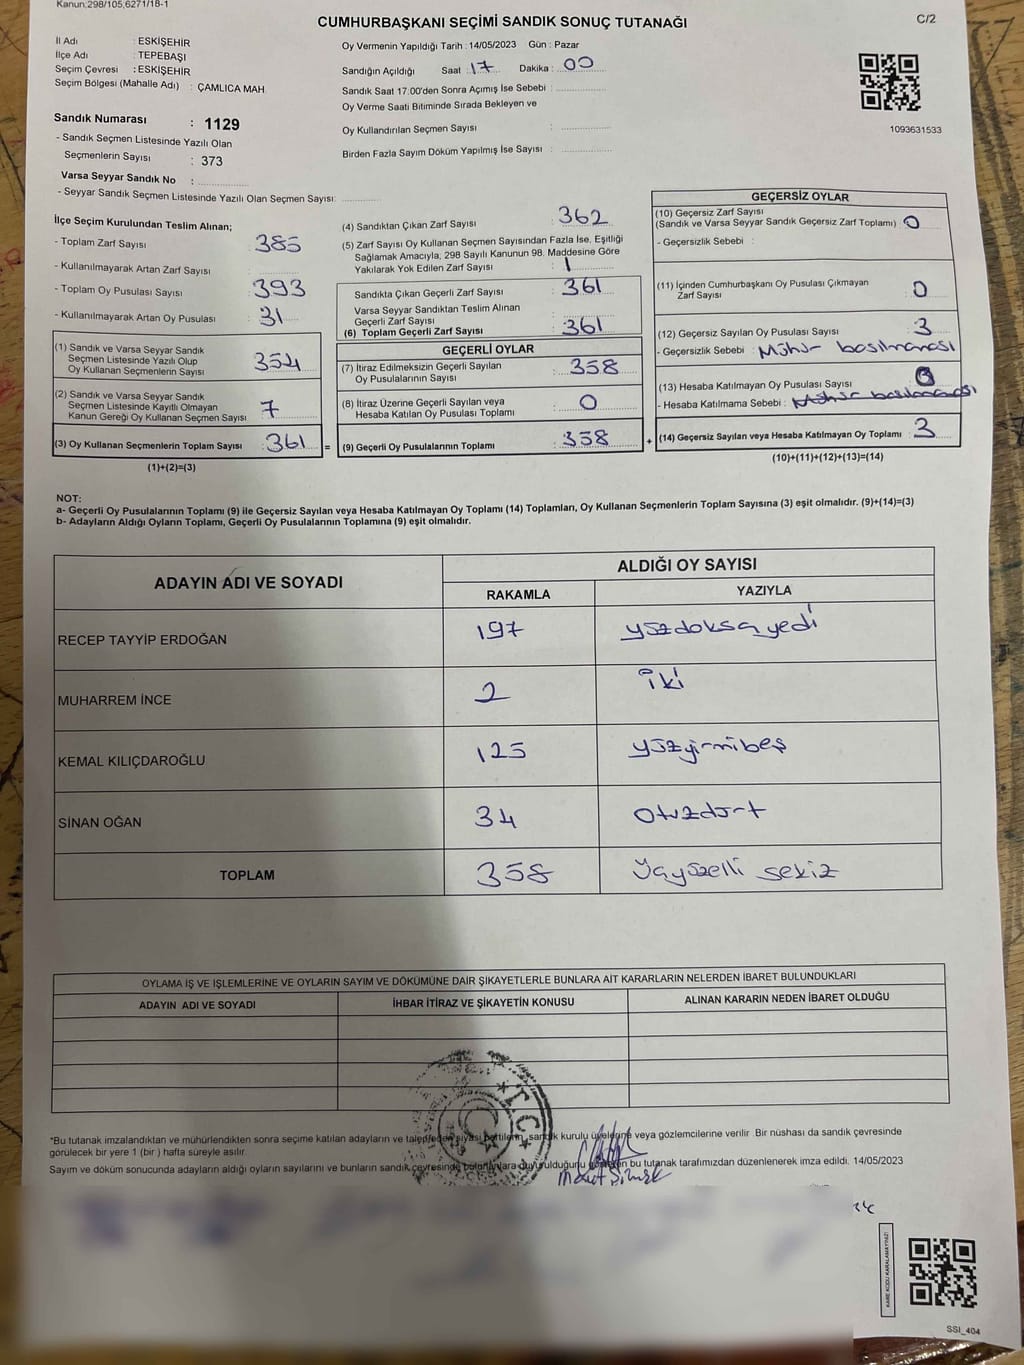 Kanun:298/105,6271/18-1
CUMHURBAŞKANI SEÇİMİ SANDIK SONUÇ TUTANAĞI
C/2
İl Adı : ESKİŞEHİR
İlçe Adı : TEPEBAŞI
Seçim Çevresi : ESKİŞEHİR
Seçim Bölgesi (Mahalle Adı) : ÇAMLICA MAH.
Oy Vermenin Yapıldığı Tarih : 14/05/2023 Gün : Pazar
Sandığın Açıldığı Saat : 17 Dakika : 00
Sandık Saat 17.00'den Sonra Açımış İse Sebebi :
Oy Verme Saati Bitiminde Sırada Bekleyen ve
Oy Kullandırılan Seçmen Sayısı :
Birden Fazla Sayım Döküm Yapılmış İse Sayısı :
1093631533
Sandık Numarası : 1129
- Sandık Seçmen Listesinde Yazılı Olan
Seçmenlerin Sayısı : 373
Varsa Seyyar Sandık No :
- Seyyar Sandık Seçmen Listesinde Yazılı Olan Seçmen Sayısı:
İlçe Seçim Kurulundan Teslim Alınan;
- Toplam Zarf Sayısı : 385
- Kullanılmayarak Artan Zarf Sayısı :
- Toplam Oy Pusulası Sayısı : 393
- Kullanılmayarak Artan Oy Pusulası : 31
(1) Sandık ve Varsa Seyyar Sandık
Seçmen Listesinde Yazılı Olup
Oy Kullanan Seçmenlerin Sayısı : 354
(2) Sandık ve Varsa Seyyar Sandık
Seçmen Listesinde Kayıtlı Olmayan
Kanun Gereği Oy Kullanan Seçmen Sayısı : 7
(3) Oy Kullanan Seçmenlerin Toplam Sayısı : 361 =
(1)+(2)=(3)
(4) Sandıktan Çıkan Zarf Sayısı : 362
(5) Zarf Sayısı Oy Kullanan Seçmen Sayısından Fazla İse, Eşitliği
Sağlamak Amacıyla, 298 Sayılı Kanunun 98. Maddesine Göre
Yakılarak Yok Edilen Zarf Sayısı : 1
Sandıkta Çıkan Geçerli Zarf Sayısı : 361
Varsa Seyyar Sandıktan Teslim Alınan
Geçerli Zarf Sayısı :
(6) Toplam Geçerli Zarf Sayısı : 361
GEÇERLİ OYLAR
(7) İtiraz Edilmeksizin Geçerli Sayılan
Oy Pusulalarının Sayısı : 358
(8) İtiraz Üzerine Geçerli Sayılan veya
Hesaba Katılan Oy Pusulası Toplamı : 0
(9) Geçerli Oy Pusulalarının Toplamı : 358 +
GEÇERSİZ OYLAR
(10) Geçersiz Zarf Sayısı
(Sandık ve Varsa Seyyar Sandık Geçersiz Zarf Toplamı) : 0
- Geçersizlik Sebebi :
(11) İçinden Cumhurbaşkanı Oy Pusulası Çıkmayan
Zarf Sayısı : 0
(12) Geçersiz Sayılan Oy Pusulası Sayısı : 3
- Geçersizlik Sebebi : Mühür basılmaması
(13) Hesaba Katılmayan Oy Pusulası Sayısı :
- Hesaba Katılmama Sebebi : Mühür basılmaması
(14) Geçersiz Sayılan veya Hesaba Katılmayan Oy Toplamı : 3
(10)+(11)+(12)+(13)=(14)
NOT:
a- Geçerli Oy Pusulalarının Toplamı (9) ile Geçersiz Sayılan veya Hesaba Katılmayan Oy Toplamı (14) Toplamları, Oy Kullanan Seçmenlerin Toplam Sayısına (3) eşit olmalıdır. (9)+(14)=(3)
b- Adayların Aldığı Oyların Toplamı, Geçerli Oy Pusulalarının Toplamına (9) eşit olmalıdır.
ADAYIN ADI VE SOYADI
ALDIĞI OY SAYISI
RAKAMLA YAZIYLA
RECEP TAYYİP ERDOĞAN 197 yüzdoksa yedi
MUHARREM İNCE 2 iki
KEMAL KILIÇDAROĞLU 125 yüzyirmibeş
SİNAN OĞAN 34 otuzdört
TOPLAM 358 üçyüzelli sekiz
OYLAMA İŞ VE İŞLEMLERİNE VE OYLARIN SAYIM VE DÖKÜMÜNE DAİR ŞİKAYETLERLE BUNLARA AİT KARARLARIN NELERDEN İBARET BULUNDUKLARI
ADAYIN ADI VE SOYADI İHBAR İTİRAZ VE ŞİKAYETİN KONUSU ALINAN KARARIN NEDEN İBARET OLDUĞU
T.C.
*Bu tutanak imzalandıktan ve mühürlendikten sonra seçime katılan adayların ve talepeden siyasi partilerin, sandık kurulu üyelerine veya gözlemcilerine verilir. Bir nüshası da sandık çevresinde
görülecek bir yere 1 (bir ) hafta süreyle asılır.
Sayım ve döküm sonucunda adayların aldığı oyların sayılarını ve bunların sandık çevresinde bulunanlara duyurulduğunu gösteren bu tutanak tarafımızdan düzenlenerek imza edildi. 14/05/2023
KARE KODU KARALAMAYINIZ!
SSI_404